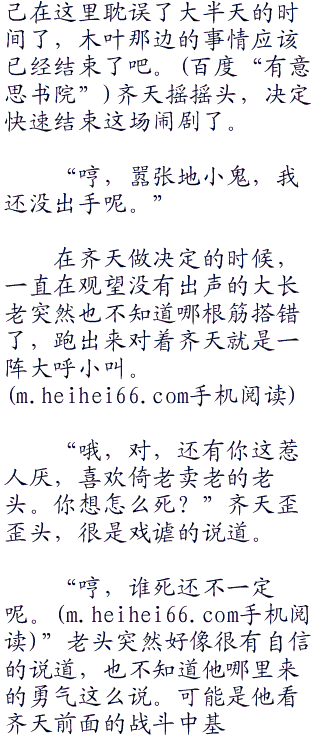 己在这里耽误了大半天的时
间了，木叶那边的事情应该
已经结束了吧。(百度“有意
思书院”)齐天摇摇头，决定
快速结束这场闹剧了。
“哼，嚣张地小鬼，我
还没出手呢。”
在齐天做决定的时候，
一直在观望没有出声的大长
老突然也不知道哪根筋搭错
了，跑出来对着齐天就是一
阵大呼小叫。
(m.heihei66.com手机阅读)
“哦，对，还有你这惹
人厌，喜欢倚老卖老的老
头。你想怎么死？”齐天歪
歪头，很是戏谑的说道。
“哼，谁死还不一定
呢。(m.heihei66.com手机阅
读)”老头突然好像很有自信
的说道，也不知道他哪里来
的勇气这么说。可能是他看
齐天前面的战斗中基